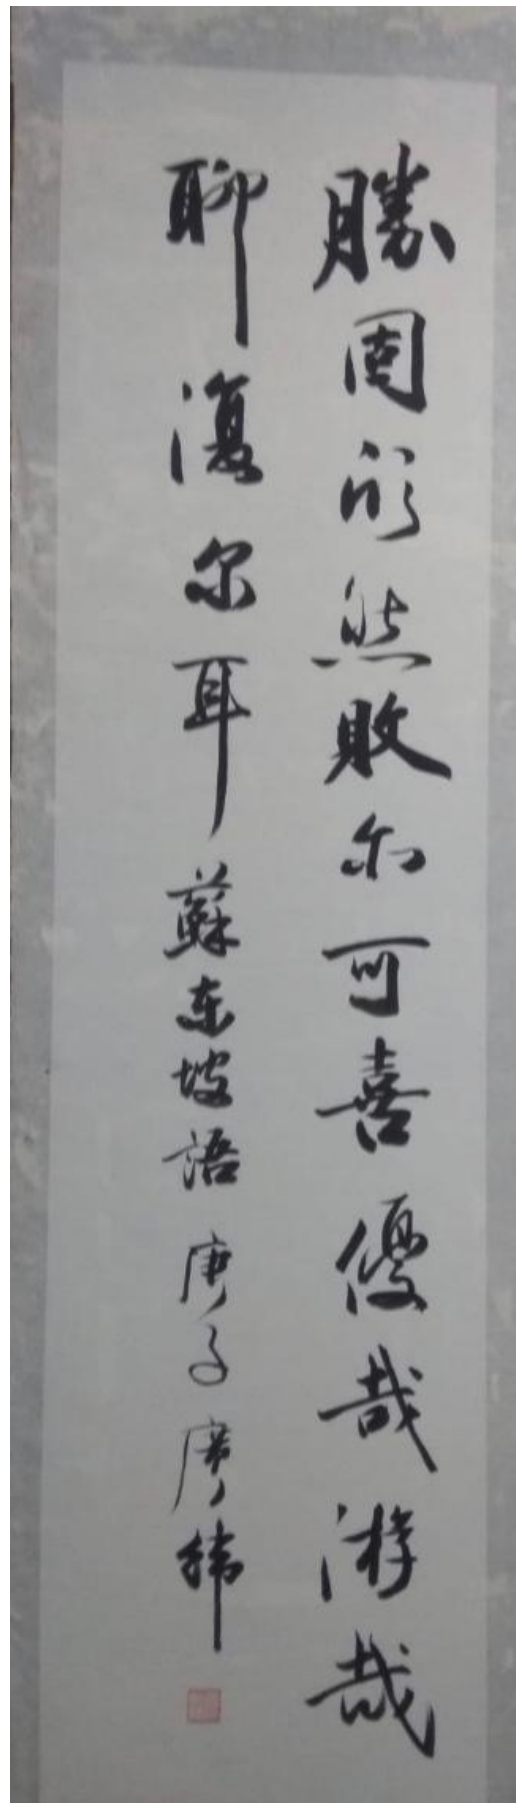 勝固欣然敗亦可喜優哉游哉
聊復尔耳 蘇东坡語 庚子